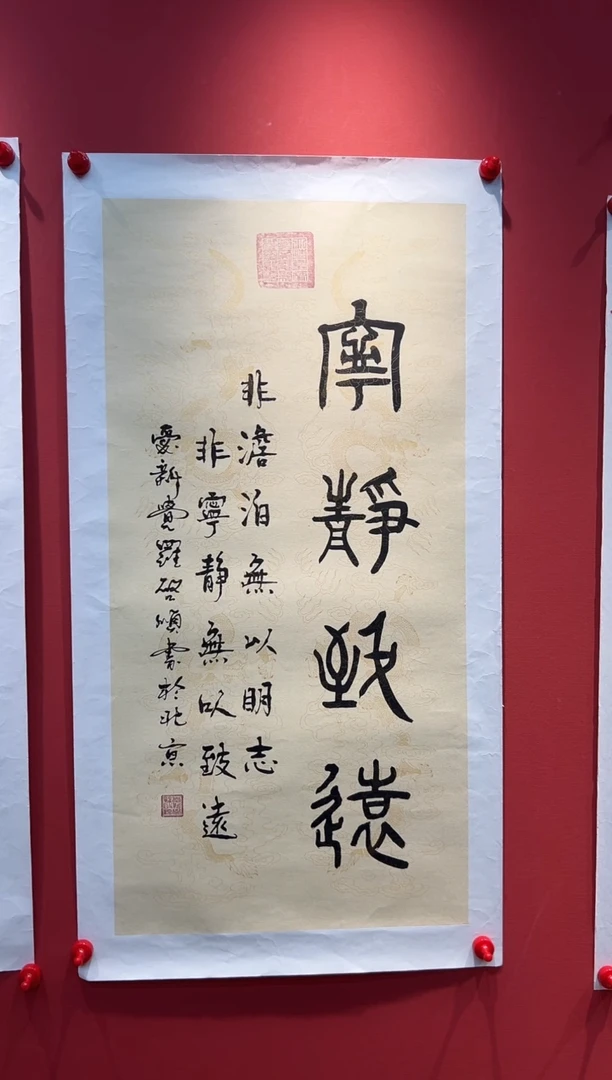 寧靜致遠
非澹泊無以明志
非寧靜無以致遠
愛新覺羅啓頌書於北京